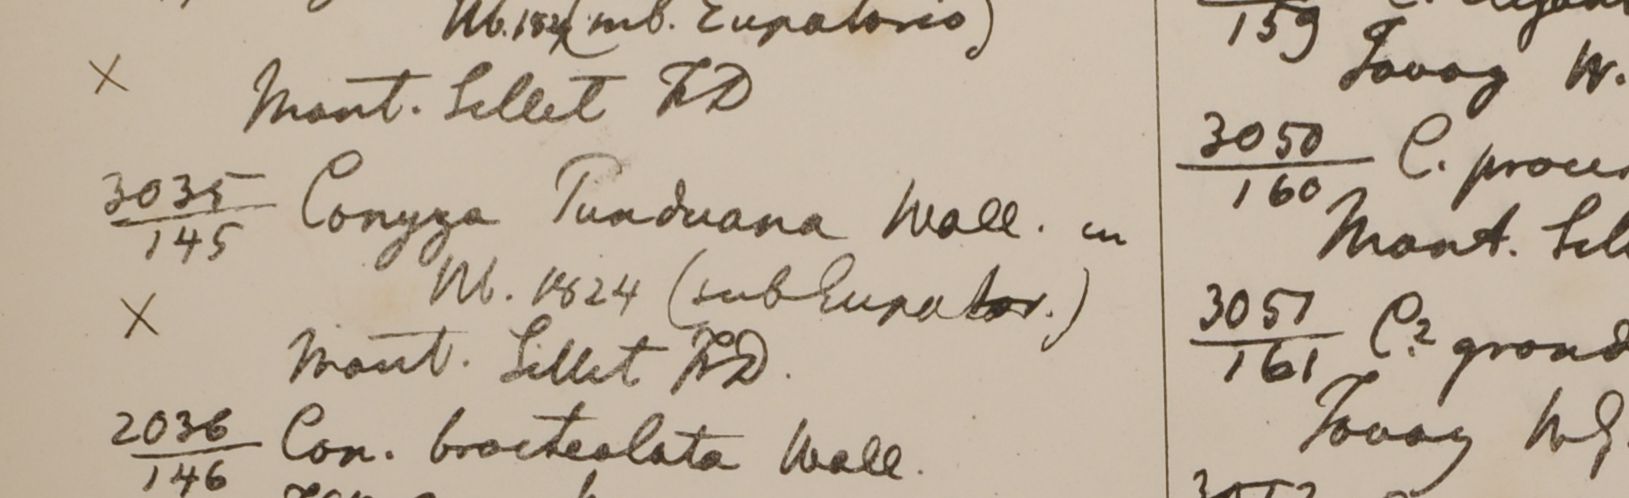 Hb. 1824 (sub. Eupatorio)
× Mont. Sillet FD
3035/145 Conyza Punduana Wall. in
Hb. 1824 (sub Eupator.)
× Mont. Sillet FD.
2036/146 Con. bracteolata Wall.
159
Tavoy W.
3050/160 C. proce
Mont. Sil
3051/161 C.? grand
Tavoy WG.